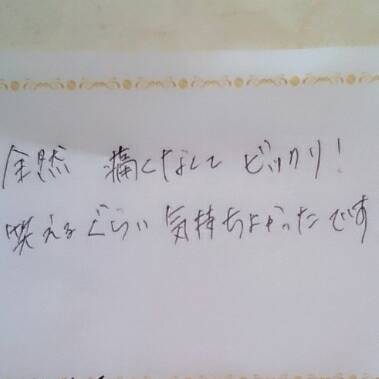 全然 痛くなくて ビックリ!
笑えるぐらい 気持ちよかったです